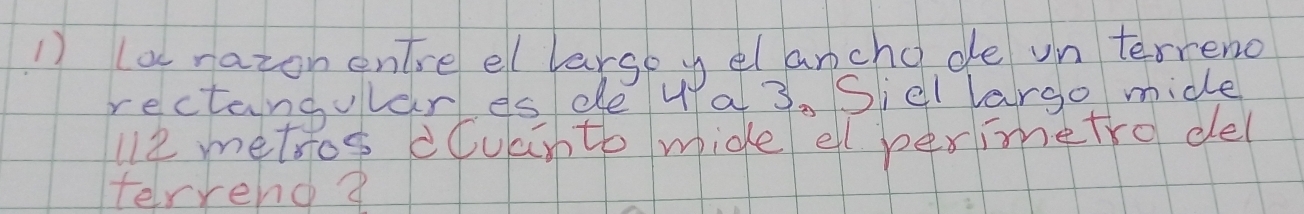 1) La razon entre el largo y el ancho de un terreno
rectangular es de 4 a 3. Si el largo mide
112 metros ¿Cuánto mide el perímetro del
terreno?